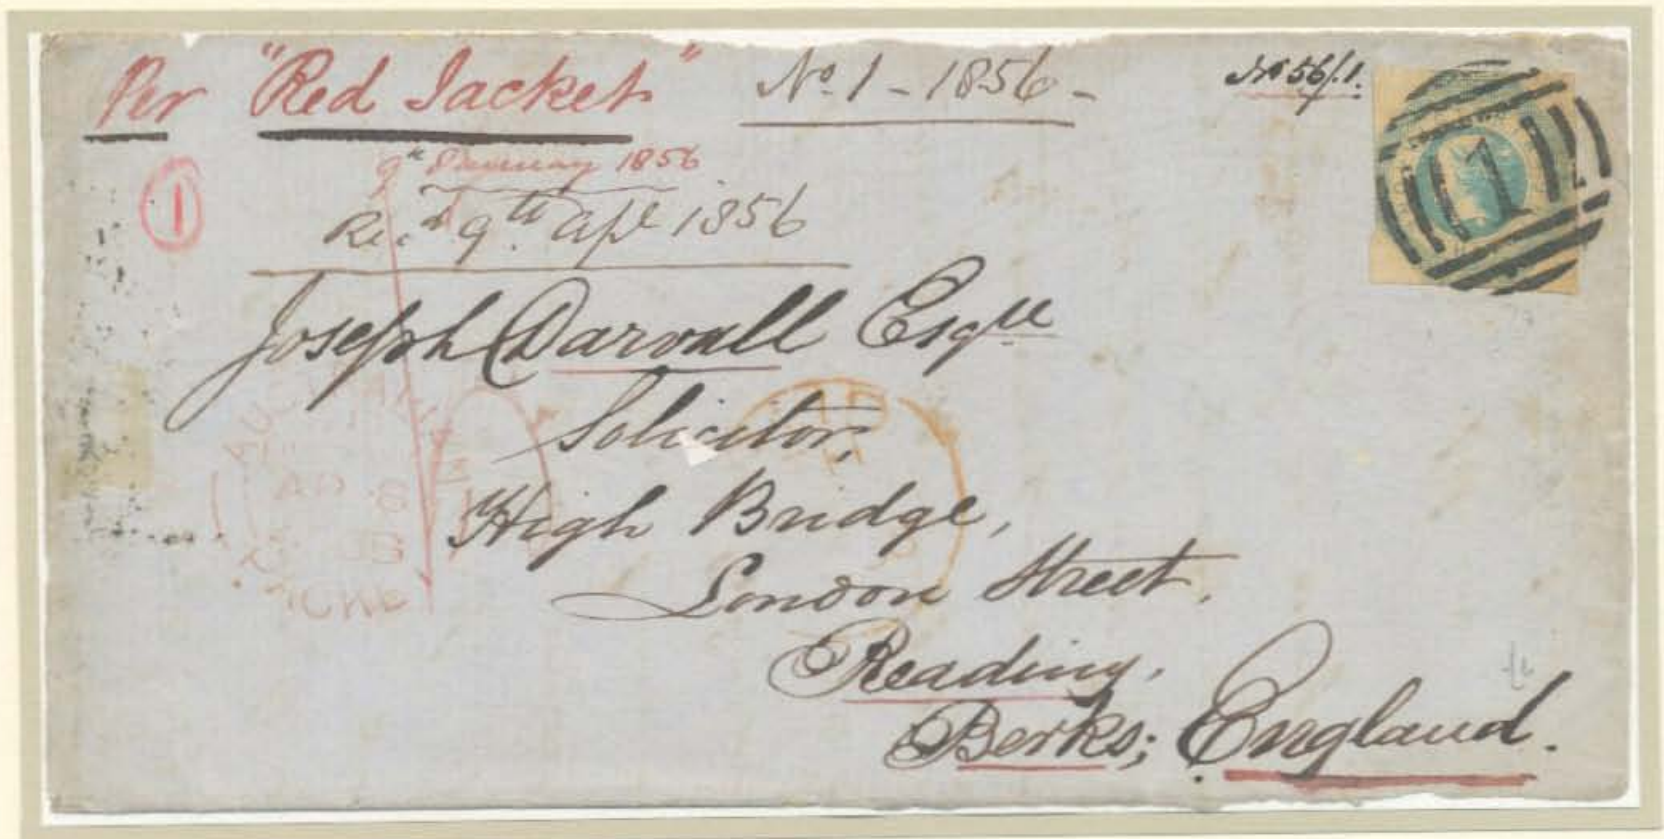 Per "Red Jacket" No. 1 - 1856 - No 56/1.
9th January 1856
1
Recd 9th Apl 1856
Joseph Darvall Esqre
Solicitor,
High Bridge,
London Street.
Reading.
Berks; England.
1
AP 8